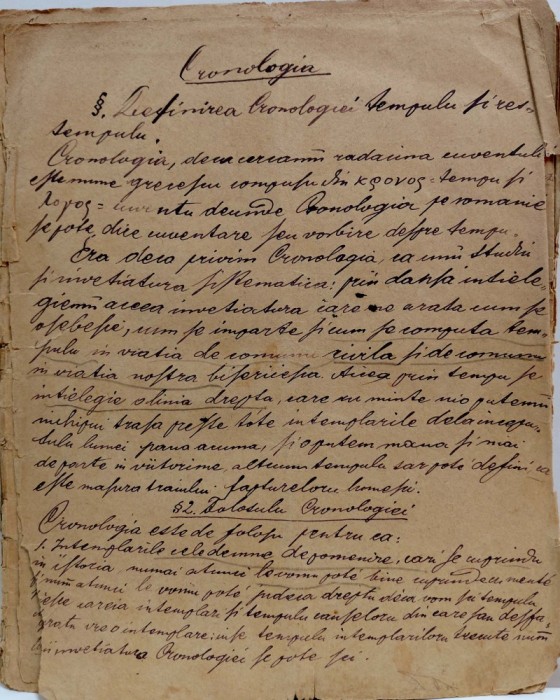 Cronologia
§. Definirea Cronologiei tempulu si res-
tempulu.
Cronologia, deca cercamu radacina cuventului
este nume grecescu compusu din χρονος = tempu si
λογος = cuventu de unde Cronologia pe romanie
se pote dice cuventare seu vorbire despre tempu.
Era deca privim Cronologia, ca unu studiu
si invetiatura sistematica: prin dansa intiele-
gemu aceea invetiatura care ne arata cum se
osebesce, cum se imparte si cum se computa tem-
pulu in viatia de comunu civila si de comunu
in viatia nostra bisericesca. Aicea prin tempu se
intielegie o linia drepta, care cu minte ni o putemu
inchipui trasa peste tote intemplarile dela incepu-
tulu lumei pana acuma, si o putem mana si mai
departe in viitorime, altcum tempulu sar pote defini ca
este masura traiului faptureloru
§2. Folosulu Cronologiei
Cronologia este de folosu pentru ca:
1. Intemplarile cele demne de pomenire, cari se cuprindu
in istoria numai atunci le vomu pote bine cuprinde cu mente
si numai atunci le vomu pote judeca dreptu deca vom sci tempulu
careia intemplari si tempulu causeloru din care sau
vreo intemplare; inse tempulu intemplariloru trecute numai
din invetiatura Cronologiei se pote sci.